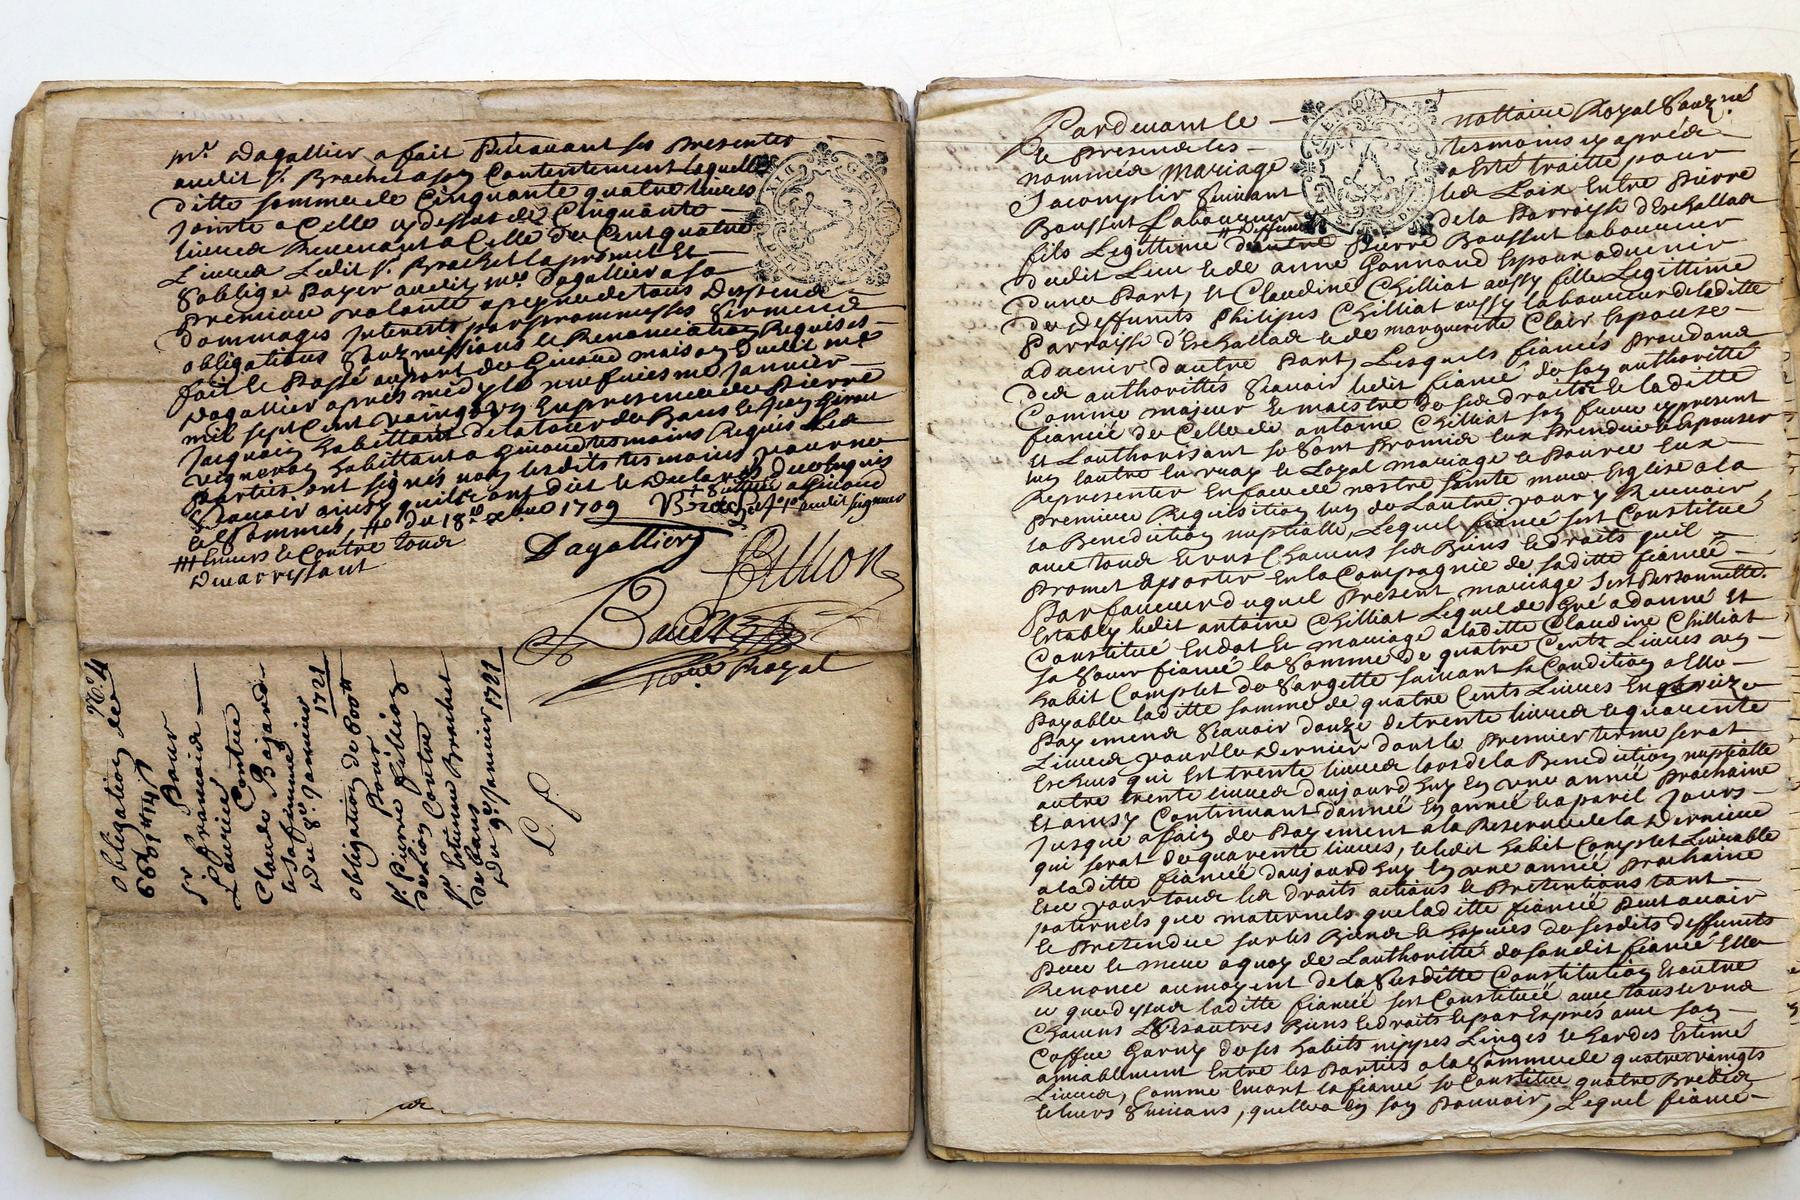 mr. Dagallier a fait presentes
audit Sr. Brachet a son Contentement laquelle
ditte somme de Cinquante quatre livres
jointe a Celle cy dessus de Cinquante
livres Revenant a Celle de Cent quatre
Livres Ledit Sr. Brachet la promet Et
S'oblige payer audit mr. Dagallier a sa
Premiere volonté a peyne de tous Despens
Dommages Interets par promesses
obligations soubzmissions Renonciation Requises
fait et Passé au port de Giraud maison dudit mr
Dagallier apres midy le neufiesme Janvier
mil sept Cent vaingt En presence de Pierre
Jacquin habittant de la tour de Bans et
vigneron habittant a Giraud tesmoins Requis Les
Parties ont signés non lesdits tesmoins pour ne
Scavoir ainsy quils ont dict et Declaré
et sommés 1709
envers et Contre tous
Dagallier
Bution
No. 4
obligation de
Pour
Sr. francois
Contre
Claude
sa femme
du 8e. Janvier
1721
obligation de 600tt
Pour
Sr. Pierre
de Lion Contre
Sr. Estienne Brachet
de bans
du 9e. Janvier 1721
Pardevant le nottaire Royal Soubzné
et Presens les tesmoins cy apres
nommés Mariage a Esté traitté pour
S'acomplir Suivant les Loix Entre Pierre
Boussut Laboureur de la Parroisse d'Eschallas
fils Legittime Pierre Boussut laboureur
dudit Lieu et de anne Gonnand Espoux advenir
d'une Part, Et Claudine Chilliat aussy fille Legittime
des deffunts Philipes Chilliat aussy laboureur de laditte
Parroisse d'Eschallas et de marguerite Clair Espouse
advenir d'autre Part, Lesquels fiancés Procedans
des authorittés Scavoir ledit fiancé de son authoritté
Comme majeur et maistre de ses droits et laditte
fiancée de Celle de antoine Chilliat son frere cy present
Et Lauthorisant se sont Promis Eux Prendre et Espouser
lun lautre En vray et Loyal mariage et Pour ce Eux
Representer En face de nostre Sainte mere Eglise a la
Premiere Requisition lun de Lautre pour y Recevoir
la Benediction nuptialle, Lequel fiancé sest Constitué
avec tous et uns Chacuns ses Biens et droits quil
Promet aporter En la Compagnie de saditte fiancée
Par faveur duquel Present mariage Sest Personnelle.
Estably ledit antoine Chilliat Lequel de Gré a donné Et
Constitué En dot et mariage a laditte Claudine Chilliat
sa Sœur fiancée la Somme de quatre Cents Livres un
habit Complet de Sargette suivant sa Condition
Payable laditte somme de quatre Cents Livres En treize
Payemens Scavoir douze de trente livres et quarente
Livres pour le dernier dont le Premier terme serat
Escheus qui Est trente livres lors de la Benediction nuptialle
autre trente livres daujourdhuy En une année Prochaine
Et ainsy Continuant dannée En année Et a pareil Jours
Jusque a fain de Payement a la Reserve de la Derniere
qui serat de quarente livres, et ledit habit Complet Livrable
a laditte fiancée daujourdhuy En une année Prochaine
Et ce pour tous les droits actions et Pretentions tant
paternels que maternels que laditte fiancée Peut avoir
et Pretendre sur les Biens et hoyries de sesdits deffunts
Pere et mere a quoy de Lauthoritté de sondit fiancé Elle
Renonce au moyent de la Susditte Constitution Et outre
ce que dessus laditte fiancée sest Constituée avec tous et uns
Chacuns Ses autres Biens et droits et par Exprés avec son
Coffre Garny de ses habits nippes Linges et hardes Estimé
amiablement Entre les Parties a la Somme de quatre vaingts
Livres, Comme Encort la fiancé se Constitue quatre Brebis
et leurs Suivans, quelle a En son Pouvoir, Lequel fiancé